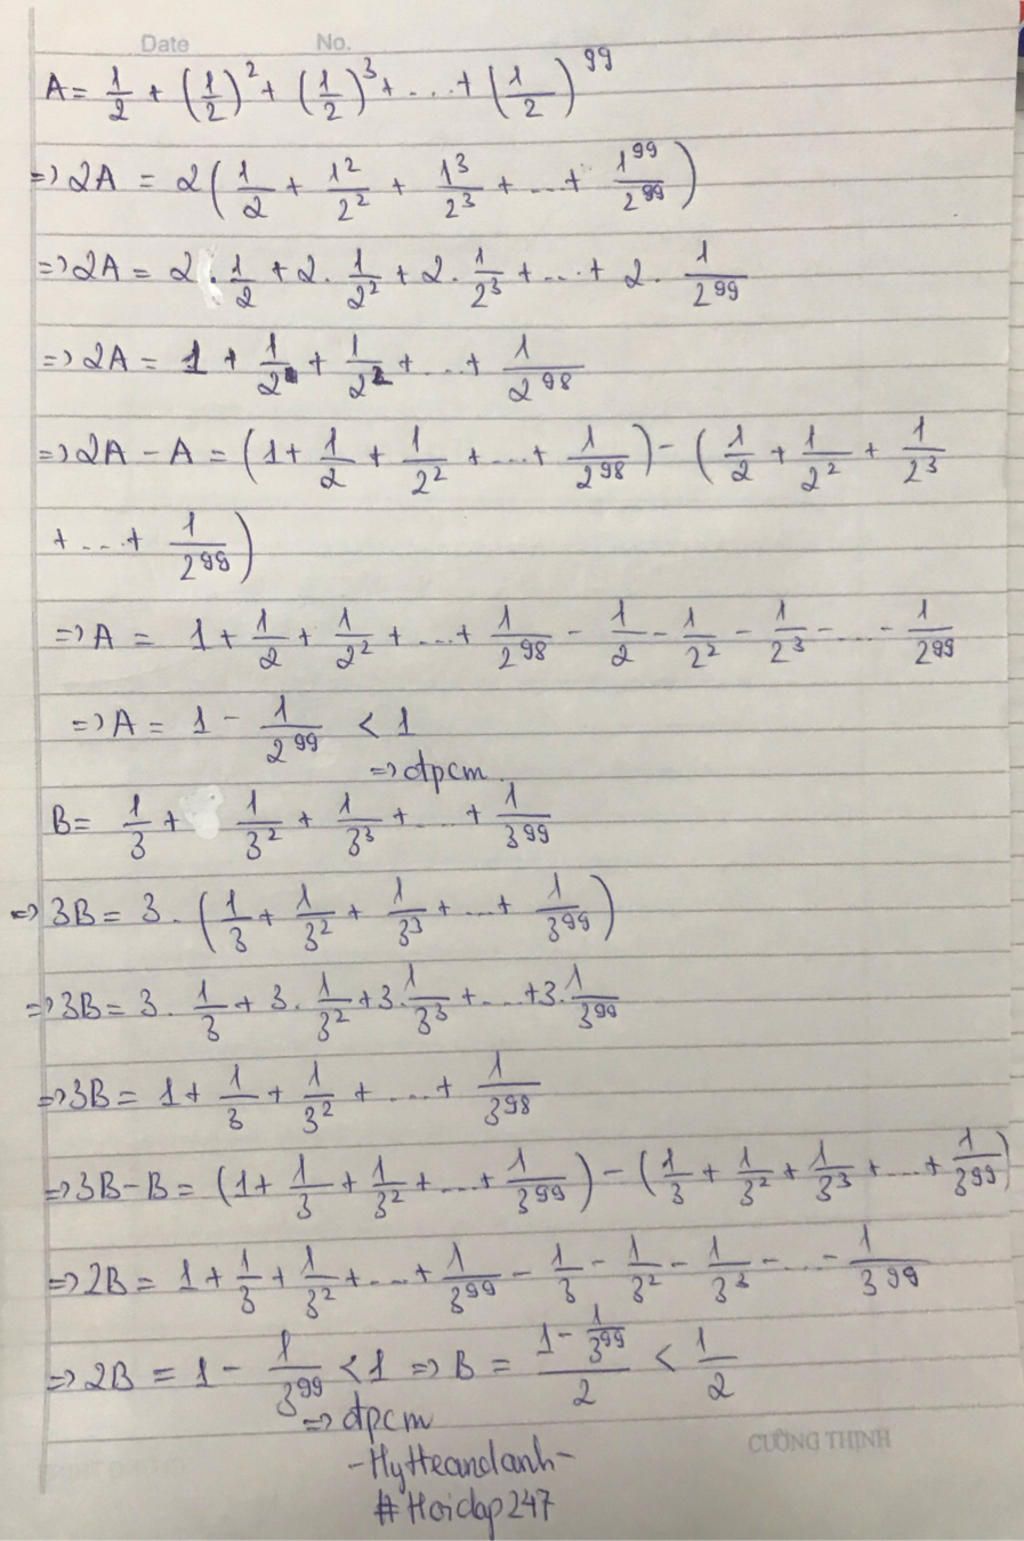 Date No.
A = 1/2 + (1/2)^2 + (1/2)^3 + ... + (1/2)^99
=> 2A = 2(1/2 + 1^2/2^2 + 1^3/2^3 + ... + 1^99/2^99)
=> 2A = 2 . 1/2 + 2 . 1/2^2 + 2 . 1/2^3 + ... + 2 . 1/2^99
=> 2A = 1 + 1/2 + 1/2^2 + ... + 1/2^98
=> 2A - A = (1 + 1/2 + 1/2^2 + ... + 1/2^98) - (1/2 + 1/2^2 + 1/2^3
+ ... + 1/2^99)
=> A = 1 + 1/2 + 1/2^2 + ... + 1/2^98 - 1/2 - 1/2^2 - 1/2^3 - ... - 1/2^99
=> A = 1 - 1/2^99 < 1
=> đpcm.
B = 1/3 + 1/3^2 + 1/3^3 + ... + 1/3^99
=> 3B = 3 . (1/3 + 1/3^2 + 1/3^3 + ... + 1/3^99)
=> 3B = 3 . 1/3 + 3 . 1/3^2 + 3 . 1/3^3 + ... + 3 . 1/3^99
=> 3B = 1 + 1/3 + 1/3^2 + ... + 1/3^98
=> 3B - B = (1 + 1/3 + 1/3^2 + ... + 1/3^99) - (1/3 + 1/3^2 + 1/3^3 + ... + 1/3^99)
=> 2B = 1 + 1/3 + 1/3^2 + ... + 1/3^99 - 1/3 - 1/3^2 - 1/3^3 - ... - 1/3^99
=> 2B = 1 - 1/3^99 < 1 => B = (1 - 1/3^99)/2 < 1/2
=> đpcm
CƯỜNG THỊNH
-HyHeandanh-
#Hoidap247